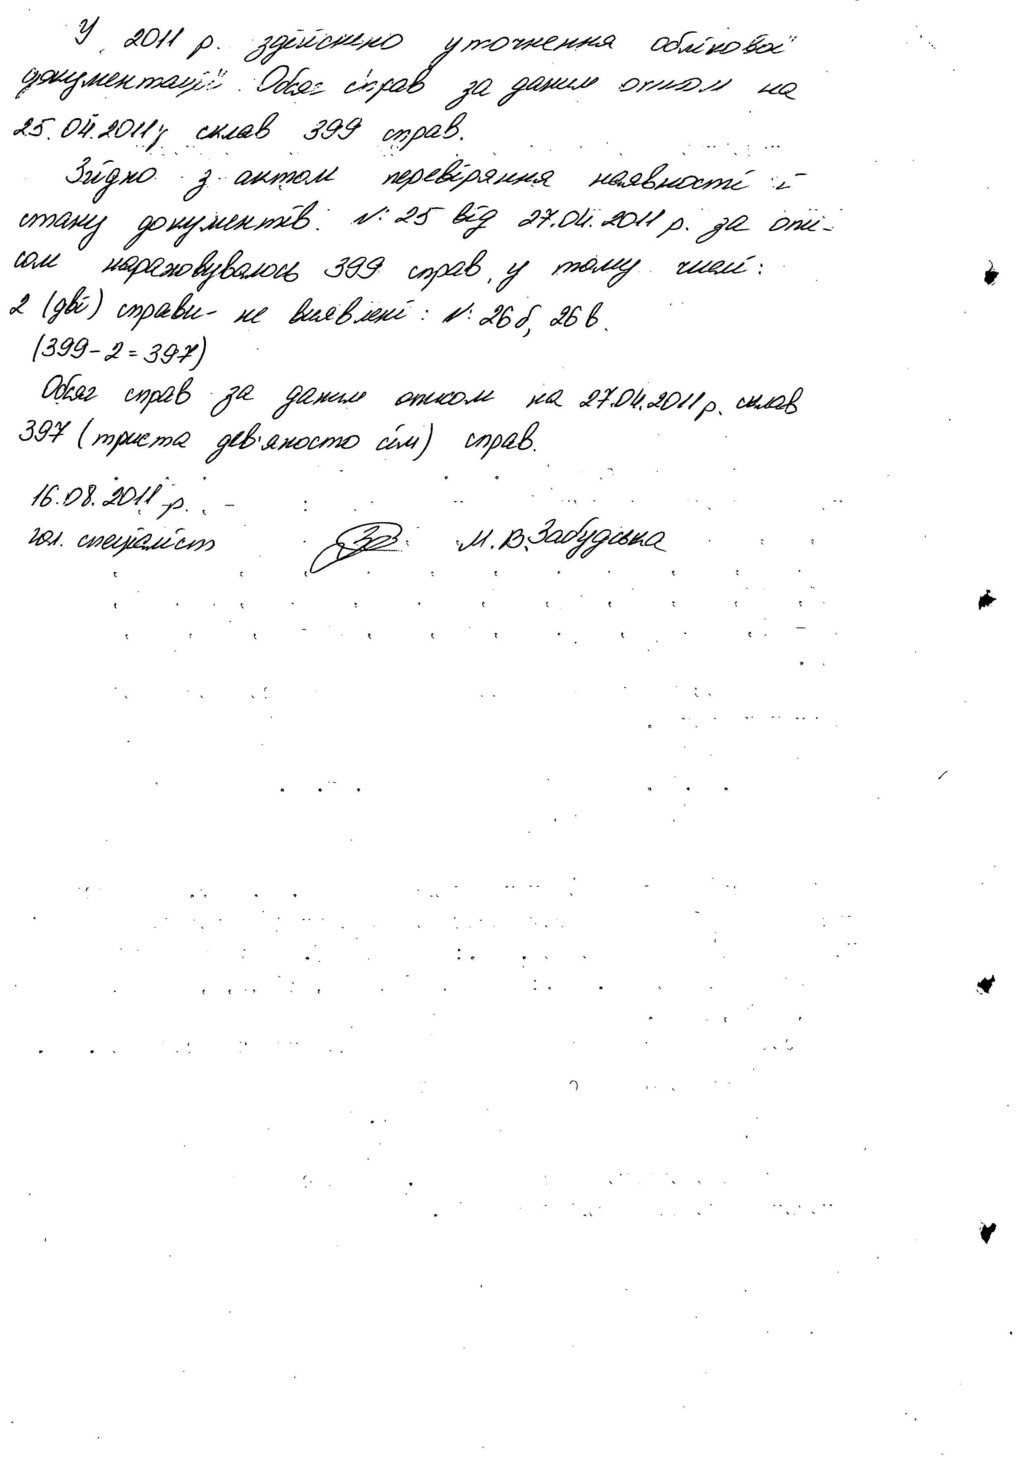 У 2011 р. здійснено уточнення облікової
документації. Обсяг справ за даним описом на
25.04.2011р склав 399 справ.
Згідно з актом перевіряння наявності і
стану документів № 25 від 27.04.2011 р. за опи-
сом нараховувалось 399 справ, у тому числі:
2 (дві) справи - не виявлені: № 26б, 26в.
(399-2=397)
Обсяг справ за даним описом на 27.04.2011р. склав
397 (триста дев'яносто сім) справ.
16.08.2011 р.
гол. спеціаліст М.В.Забудська